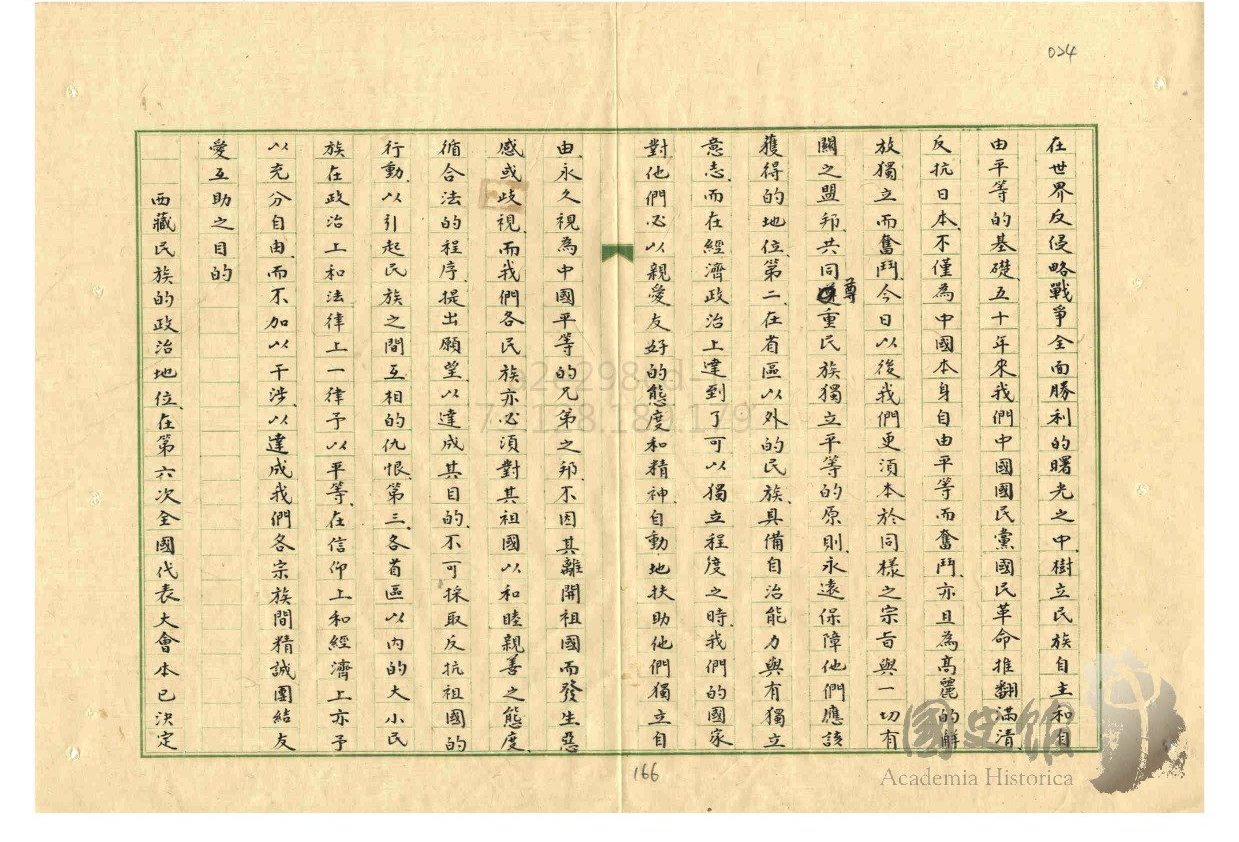 024
在世界反侵略戰爭全面勝利的曙光之中、樹立民族自主和自
由平等的基礎、五十年來我們中國國民黨國民革命、推翻滿清、
反抗日本、不僅為中國本身自由平等而奮鬥、亦且為高麗的解
放獨立而奮鬥、今日以後我們更須本於同樣之宗旨與一切有
關之盟邦、共同尊重民族獨立平等的原則、永遠保障他們應該
獲得的地位、第二、在省區以外的民族、具備自治能力與有獨立
意志、而在經濟政治上達到了可以獨立程度之時、我們的國家
對他們必以親愛友好的態度和精神、自動地扶助他們獨立自
由、永久視為中國平等的兄弟之邦、不因其離開祖國而發生惡
感或歧視、而我們各民族亦必須對其祖國以和睦親善之態度、
循合法的程序、提出願望、以達成其目的、不可採取反抗祖國的
行動、以引起民族之間互相的仇恨、第三、各省區以內的大小民
族在政治上和法律上一律予以平等、在信仰上和經濟上亦予
以充分自由、而不加以干涉、以達成我們各宗族間精誠團結友
愛互助之目的
西藏民族的政治地位、在第六次全國代表大會本已決定
166
國史館
Academia Historica